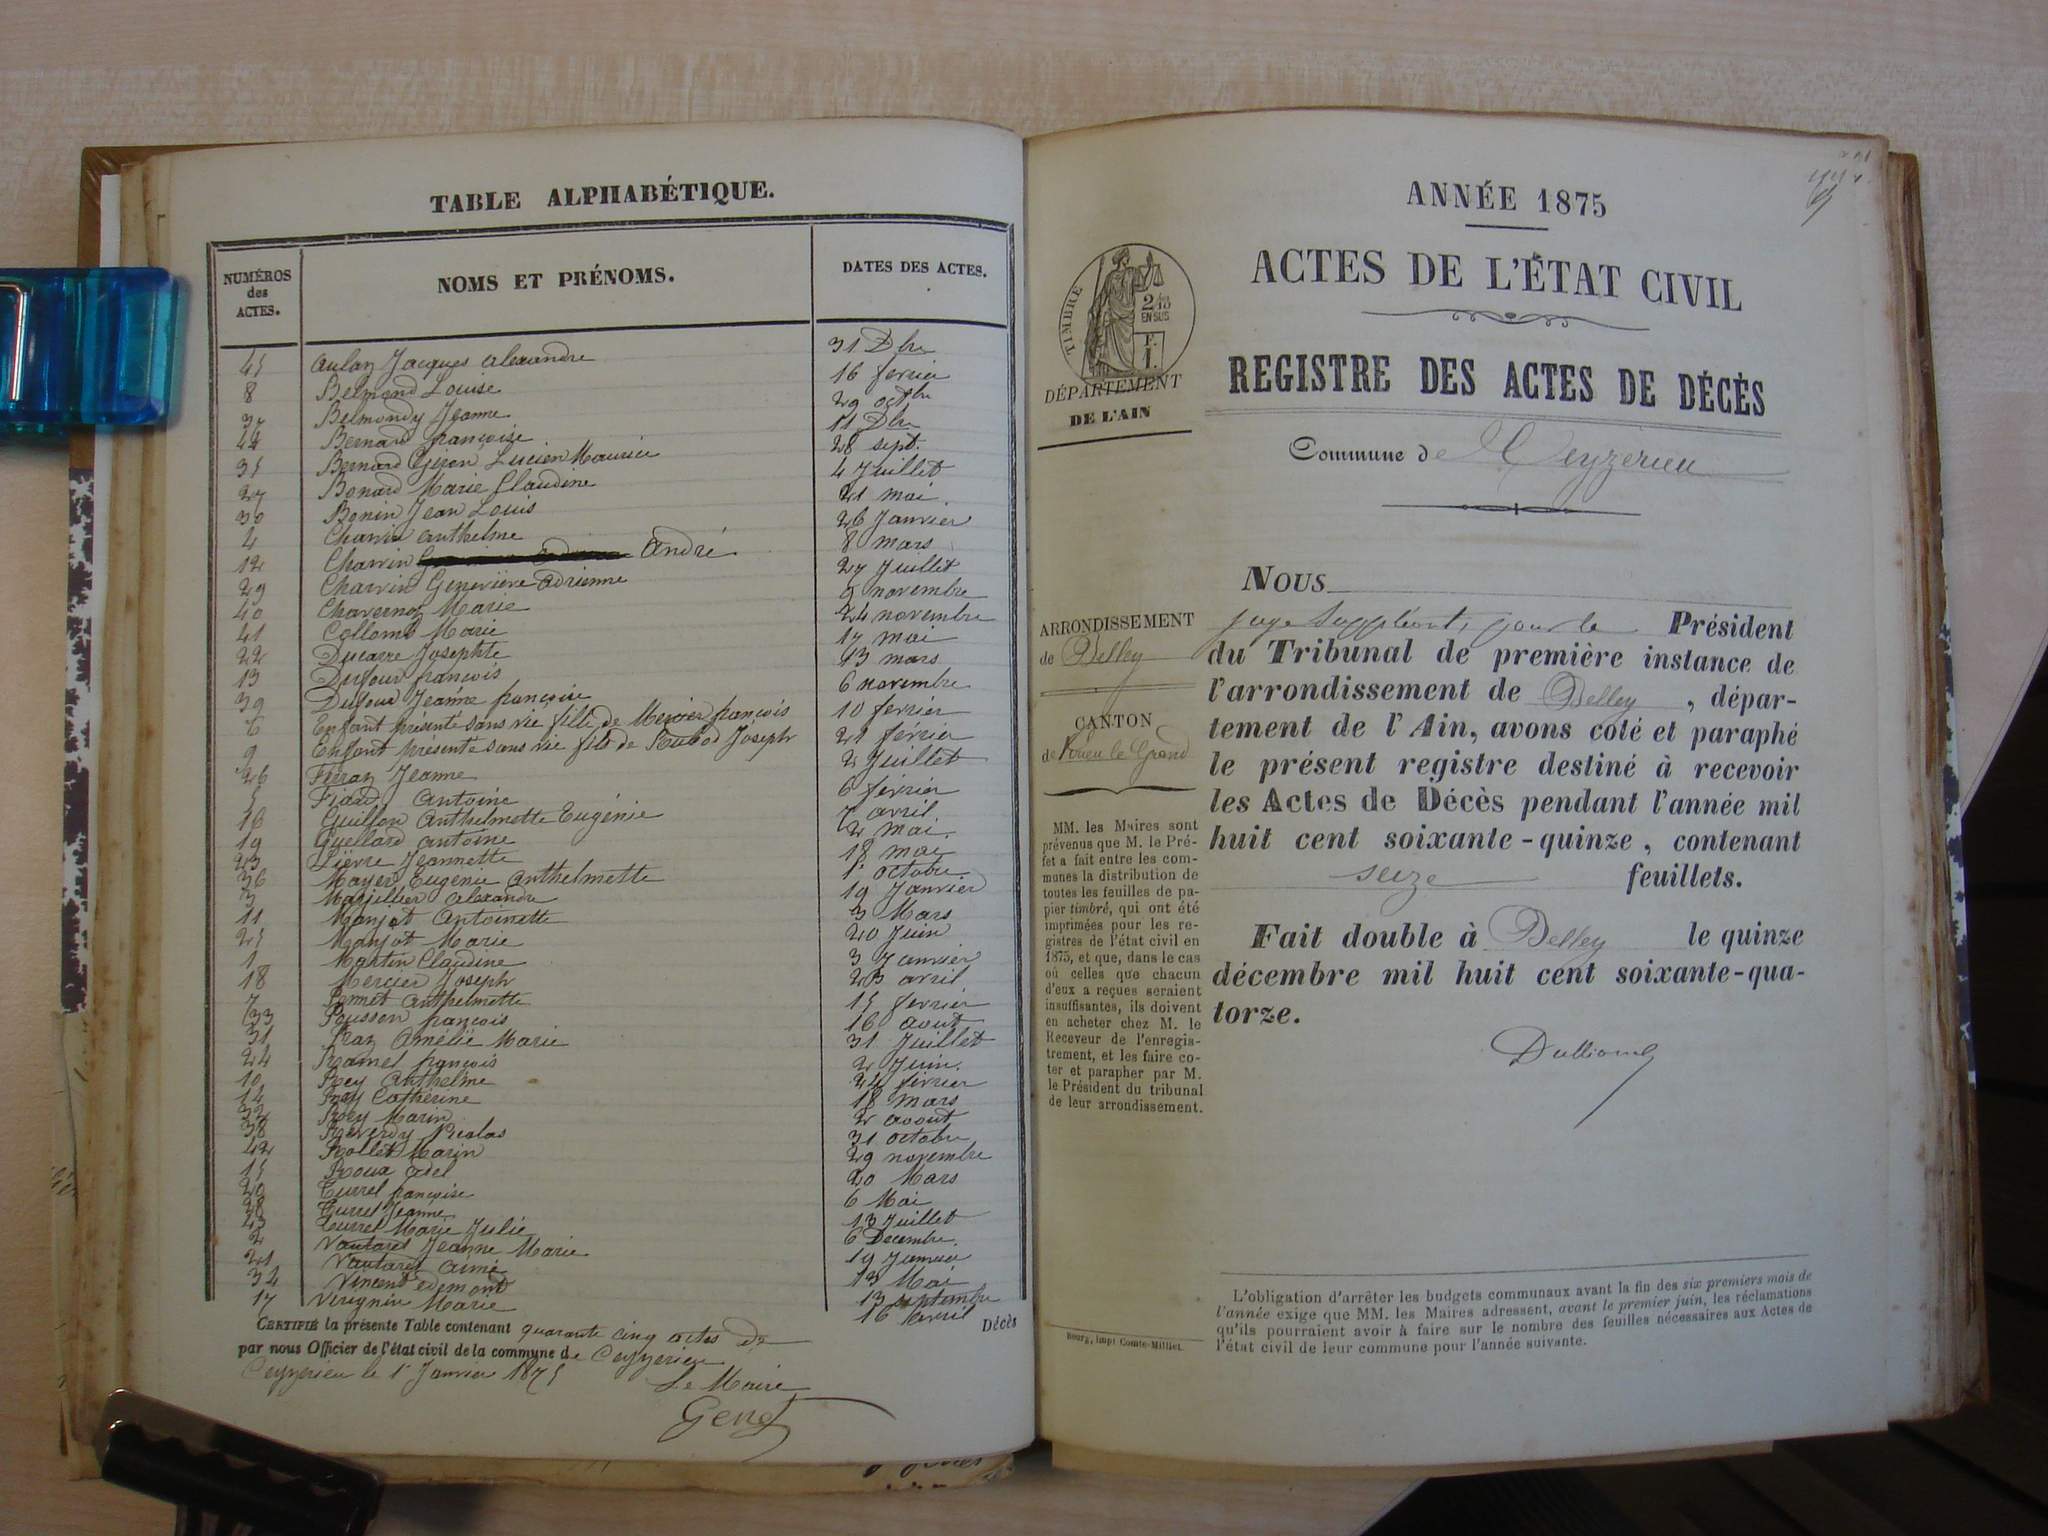 TABLE ALPHABÉTIQUE.
NUMÉROS des ACTES.
NOMS ET PRÉNOMS.
DATES DES ACTES.
45 Aulaz Jacques Alexandre 31 Dbre
8 Belmond Louise 16 ferier
37 Belmondy Jeanne 29 octbre
44 Bernard françoise 11 Dbre
35 Bernard Lucien Maurice 28 sept.
27 Bonard Marie Claudine 4 Juillet
30 Bonin Jean Louis 21 mai.
4 Charvin anthelme 26 Janvier
12 Charvin André 8 mars
29 Charvin Geneviève adrienne 27 Juillet
40 Chavernoz Marie 9 novembre
41 Collomb Marie 24 novembre
22 Ducarre Josephte 17 mai
13 Dufour françois 13 mars
39 Dufour Jeanne françoise 6 novembre
6 Enfant présenté sans vie fille de Mercier françois 10 ferier
9 Enfant présenté sans vie fils de Rubod Joseph 21 férier
26 Ferraz Jeanne 2 Juillet
5 Fiard Antoine 6 férier
16 Guillon Anthelmette Eugénie 7 avril
19 Guellard antoine 2 mai.
23 Lièvre Jeannette 18 mai
36 Mayer Eugénie Anthelmette 1r octobre.
3 Marjillier Alexandre 19 Janvier
11 Monjot Antoinette 3 Mars
25 Monjot Marie 20 Juin
1 Martin Claudine 3 Janvier
18 Mercier Joseph 23 avril
7 Perret Anthelmette 15 ferier
33 Pousson françois 16 aout
31 Praz Amélie Marie 31 Juillet
24 Ramel françois 2 Juin.
10 Rey Anthelme 24 férier
14 Rey Catherine 18 mars
32 Rey Marin 2 avout
38 Reverdy Nicolas 31 octobre
42 Rollet Marin 29 novembre
15 Roux Adel 20 Mars
20 Turrel françoise 6 Mai
28 Turrel Jeanne 13 Juillet
43 Turrel Marie Julie 6 Decembre.
2 Vautaret Jeanne Marie 19 Janvier
21 Vautaret Aimé 13 Mai
34 Vincent Edmond 13 septembre
17 Vérignin Marie 16 Avril
CERTIFIÉ la présente Table contenant quarante cinq actes de Décès
par nous Officier de l'état civil de la commune de Ceyzerieu
Ceyzerieu le 1r Janvier 1875
Le Maire
Genot
ANNÉE 1875
ACTES DE L'ÉTAT CIVIL
REGISTRE DES ACTES DE DÉCÈS
Commune de Ceyzérieu
TIMBRE
2/10
EN SUS
F.
1.
DÉPARTEMENT
DE L'AIN
ARRONDISSEMENT
de Belley
CANTON
de Virieu le Grand
MM. les Maires sont
prévenus que M. le Pré-
fet a fait entre les com-
munes la distribution de
toutes les feuilles de pa-
pier timbré, qui ont été
imprimées pour les re-
gistres de l'état civil en
1875, et que, dans le cas
où celles que chacun
d'eux a reçues seraient
insuffisantes, ils doivent
en acheter chez M. le
Receveur de l'enregis-
trement, et les faire co-
ter et parapher par M.
le Président du tribunal
de leur arrondissement.
NOUS
juge suppléant, pour le Président
du Tribunal de première instance de
l'arrondissement de Belley, dépar-
tement de l'Ain, avons coté et paraphé
le présent registre destiné à recevoir
les Actes de Décès pendant l'année mil
huit cent soixante-quinze, contenant
seize feuillets.
Fait double à Belley le quinze
décembre mil huit cent soixante-qua-
torze.
L'obligation d'arrêter les budgets communaux avant la fin des six premiers mois de
l'année exige que MM. les Maires adressent, avant le premier juin, les réclamations
qu'ils pourraient avoir à faire sur le nombre des feuilles nécessaires aux Actes de
l'état civil de leur commune pour l'année suivante.
Bourg, impr Comte-Milliet.